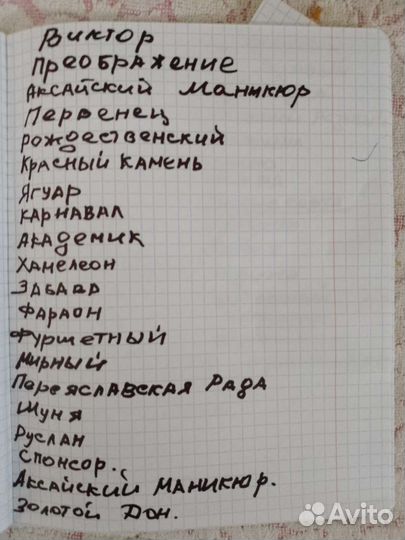 Виктор
Преображение
Аксайский Маникюр
Первенец
Рождественский
Красный камень
Ягуар
Карнавал
Академик
Хамелеон
Забава
Фараон
Фуршетный
Мирный
Переяславская Рада
Шуня
Руслан
Спонсор.
Аксайский маникюр.
Золотой Дон.
Avito